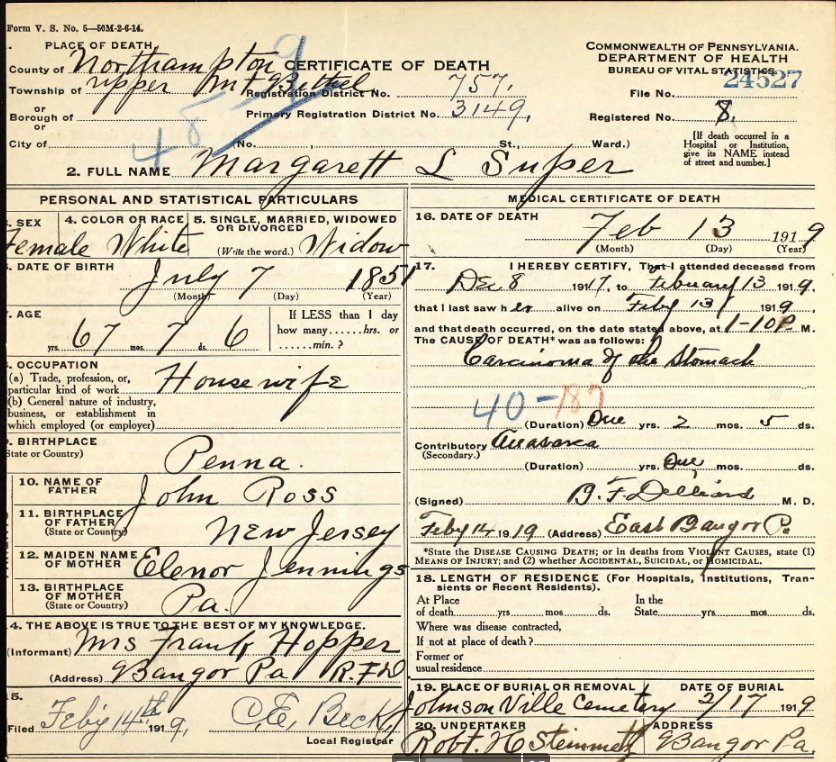 Form V. S. No. 5—50M-2-6-14.
PLACE OF DEATH
County of Northampton
Township of Upper Mt Bethel
or
Borough of
or
City of
CERTIFICATE OF DEATH
Registration District No. 757.
Primary Registration District No. 3149.
(No. , St., Ward.)
COMMONWEALTH OF PENNSYLVANIA.
DEPARTMENT OF HEALTH
BUREAU OF VITAL STATISTICS
File No. 24527
Registered No. 8.
[If death occurred in a
Hospital or Institution,
give its NAME instead
of street and number.]
2. FULL NAME Margarett L Super
PERSONAL AND STATISTICAL PARTICULARS
SEX
Female
4. COLOR OR RACE
White
5. SINGLE, MARRIED, WIDOWED
OR DIVORCED
(Write the word.) Widow
DATE OF BIRTH
July 7 1851
(Month) (Day) (Year)
AGE
67 yrs. 7 mos. 6 ds.
If LESS than 1 day
how many......hrs. or
......min.?
OCCUPATION
(a) Trade, profession, or,
particular kind of work Housewife
(b) General nature of industry,
business, or establishment in
which employed (or employer)
BIRTHPLACE
State or Country)
Penna.
10. NAME OF
FATHER
John Ross
11. BIRTHPLACE
OF FATHER
(State or Country)
New Jersey
12. MAIDEN NAME
OF MOTHER
Elenor Jennings
13. BIRTHPLACE
OF MOTHER
(State or Country)
Pa.
4. THE ABOVE IS TRUE TO THE BEST OF MY KNOWLEDGE.
(Informant) Mrs Frank Hopper
(Address) Bangor Pa R.F.D
15.
Filed Feby 14th 1919, C.E. Beck
Local Registrar
MEDICAL CERTIFICATE OF DEATH
16. DATE OF DEATH
Feb 13 1919
(Month) (Day) (Year)
17. I HEREBY CERTIFY, That I attended deceased from
Dec 8 1917, to February 13 1919,
that I last saw her alive on Feby 13 1919,
and that death occurred, on the date stated above, at 1-10P M.
The CAUSE OF DEATH* was as follows:
Carcinoma of the Stomach
40-187
(Duration) One yrs. 2 mos. 5 ds.
Contributory Anasarca
(Secondary.)
(Duration) yrs. One mos. ds.
(Signed) B. F. Dilliard M. D.
Feby 14 1919 (Address) East Bangor Pa.
*State the DISEASE CAUSING DEATH; or in deaths from VIOLENT CAUSES, state (1)
MEANS OF INJURY; and (2) whether ACCIDENTAL, SUICIDAL, or HOMICIDAL.
18. LENGTH OF RESIDENCE (For Hospitals, Institutions, Tran-
sients or Recent Residents).
At Place In the
of death yrs. mos. ds. State yrs. mos. ds.
Where was disease contracted,
If not at place of death?
Former or
usual residence
19. PLACE OF BURIAL OR REMOVAL
Johnson Ville Cemetery
DATE OF BURIAL
2/17 1919
20. UNDERTAKER
Robt. H Steinmetz
ADDRESS
Bangor Pa.